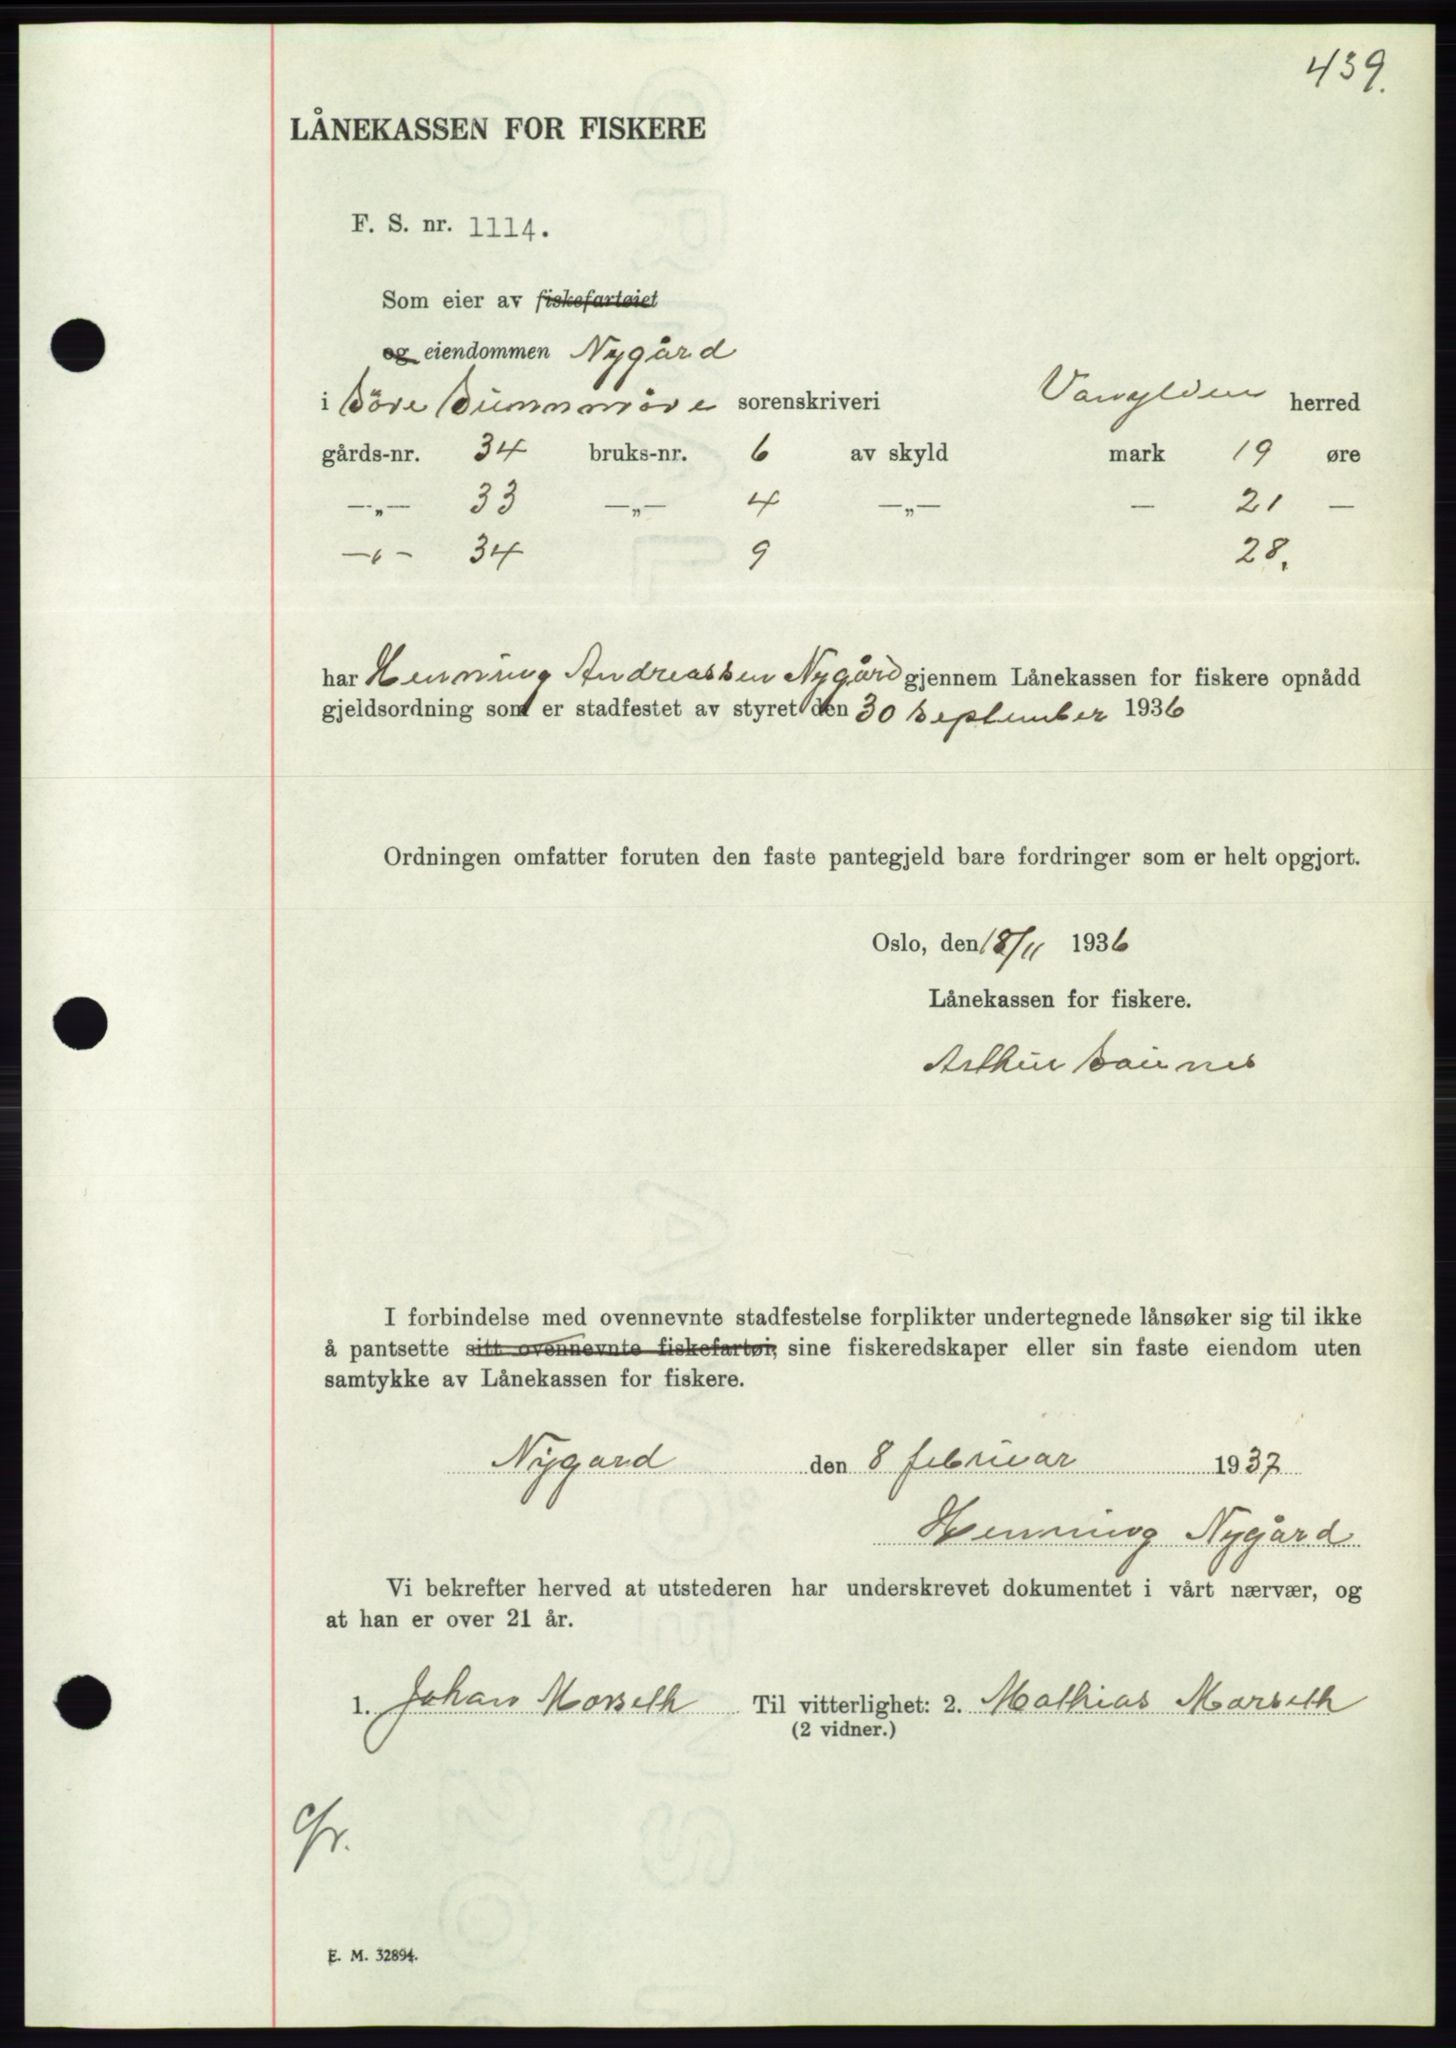 439.
LÅNEKASSEN FOR FISKERE
F. S. nr. 1114.
Som eier av fiskefartøiet
og eiendommen Nygård
i Söre Sunnmöre sorenskriveri Vanylven herred
gårds-nr. 34 bruks-nr. 6 av skyld mark 19 øre
—„— 33 —„— 4 —„— — 21 —
—„— 34 9 28.
har Henning Andreassen Nygård gjennem Lånekassen for fiskere opnådd
gjeldsordning som er stadfestet av styret den 30 september 1936
Ordningen omfatter foruten den faste pantegjeld bare fordringer som er helt opgjort.
Oslo, den 18/11 1936
Lånekassen for fiskere.
Arthur
I forbindelse med ovennevnte stadfestelse forplikter undertegnede lånsøker sig til ikke
å pantsette sitt ovennevnte fiskefartøi, sine fiskeredskaper eller sin faste eiendom uten
samtykke av Lånekassen for fiskere.
Nygard den 8 februar 1937
Henning Nygård
Vi bekrefter herved at utstederen har underskrevet dokumentet i vårt nærvær, og
at han er over 21 år.
1. Johan Morseth Til vitterlighet: 2. Mathias Marseth
(2 vidner.)
E. M. 32894.